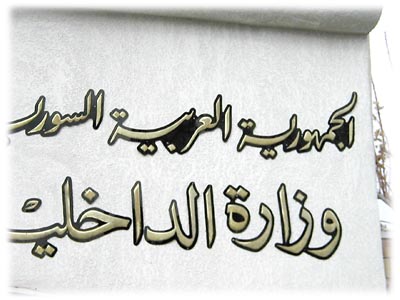 الجمهورية العربية السوري
وزارة الداخلي